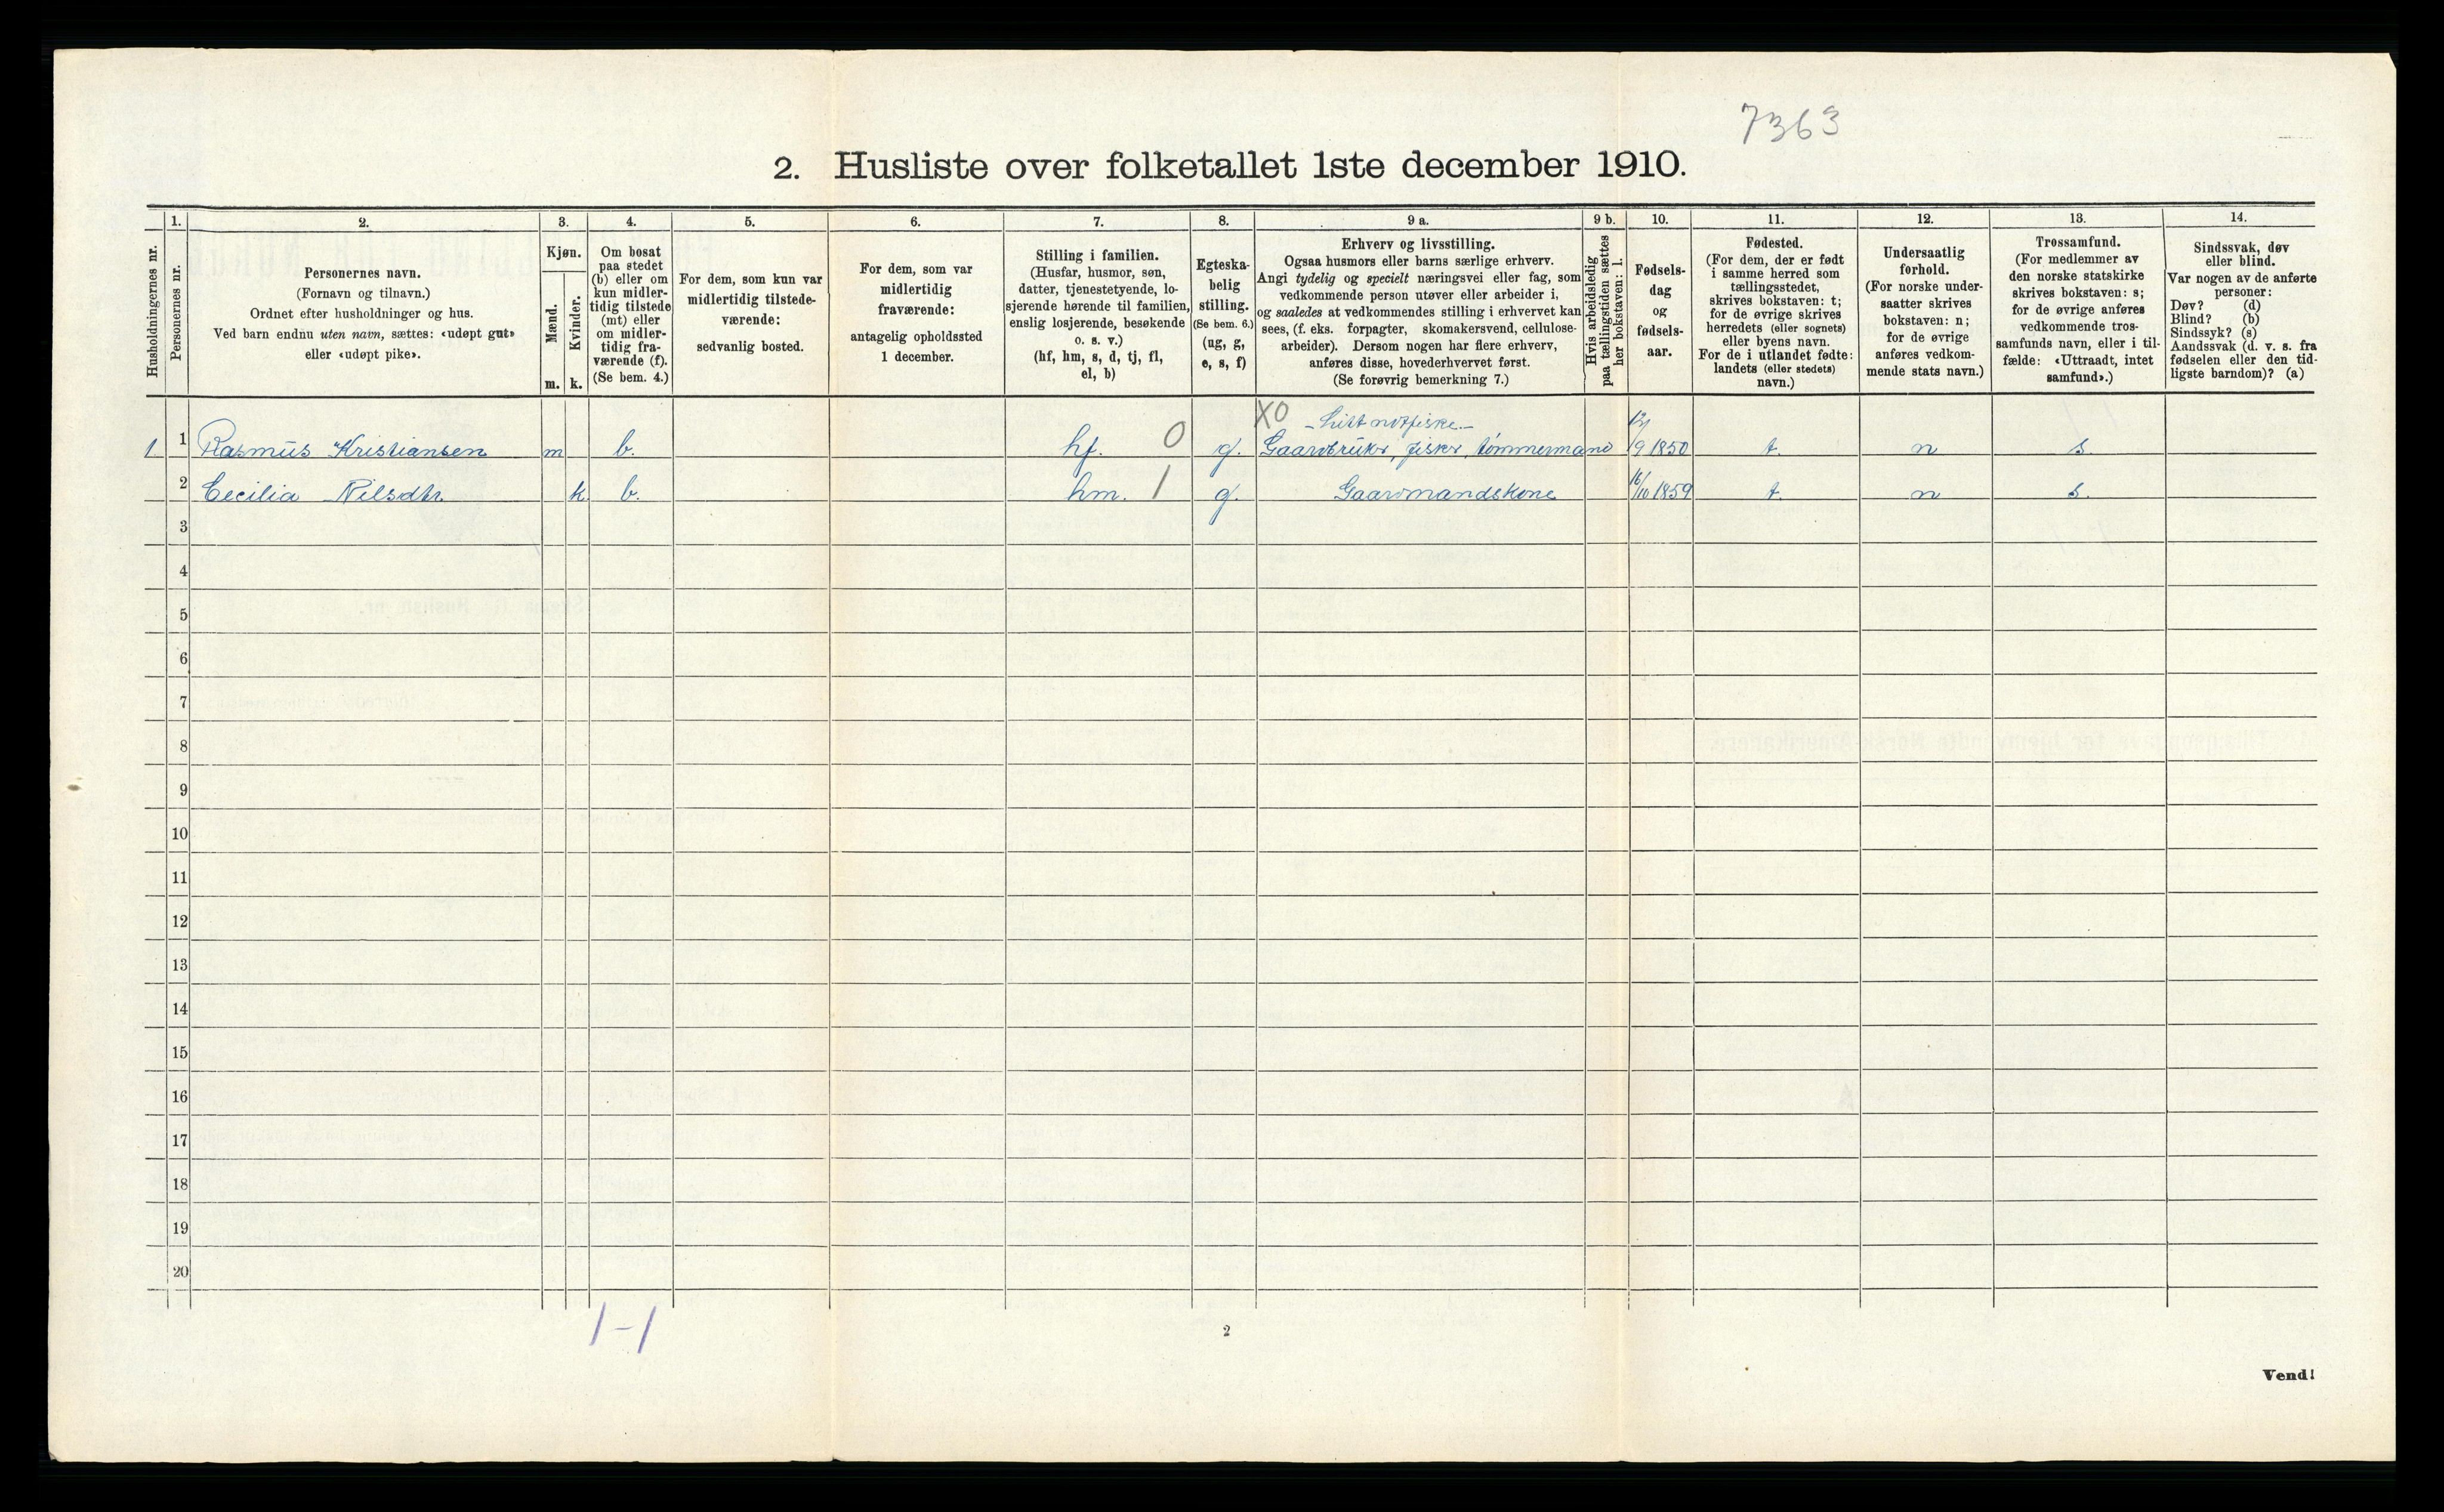 7363
2. Husliste over folketallet 1ste december 1910.
Husholdningernes nr.
1.
Personernes nr.
2.
Personernes navn.
(Fornavn og tilnavn.)
Ordnet efter husholdninger og hus.
Ved barn endnu uten navn, sættes: «udøpt gut»
eller «udøpt pike».
3.
Kjøn.
Mænd.
m.
Kvinder.
k.
4.
Om bosat
paa stedet
(b) eller om
kun midler-
tidig tilstede
(mt) eller
om midler-
tidig fra-
værende (f).
(Se bem. 4.)
5.
For dem, som kun var
midlertidig tilstede-
værende:
sedvanlig bosted.
6.
For dem, som var
midlertidig
fraværende:
antagelig opholdssted
1 december.
7.
Stilling i familien.
(Husfar, husmor, søn,
datter, tjenestetyende, lo-
sjerende hørende til familien,
enslig losjerende, besøkende
o. s. v.)
(hf, hm, s, d, tj, fl,
el, b)
8.
Egteska-
belig
stilling.
(Se bem. 6.)
(ug, g,
e, s, f)
9 a.
Erhverv og livsstilling.
Ogsaa husmors eller barns særlige erhverv.
Angi tydelig og specielt næringsvei eller fag, som
vedkommende person utøver eller arbeider i,
og saaledes at vedkommendes stilling i erhvervet kan
sees, (f. eks. forpagter, skomakersvend, cellulose-
arbeider). Dersom nogen har flere erhverv,
anføres disse, hovederhvervet først.
(Se forøvrig bemerkning 7.)
9 b.
Hvis arbeidsledig
paa tællingstiden sættes
her bokstaven: l.
10.
Fødsels-
dag
og
fødsels-
aar.
11.
Fødested.
(For dem, der er født
i samme herred som
tællingsstedet,
skrives bokstaven: t;
for de øvrige skrives
herredets (eller sognets)
eller byens navn.
For de i utlandet fødte:
landets (eller stedets)
navn.)
12.
Undersaatlig
forhold.
(For norske under-
saatter skrives
bokstaven: n;
for de øvrige
anføres vedkom-
mende stats navn.)
13.
Trossamfund.
(For medlemmer av
den norske statskirke
skrives bokstaven: s;
for de øvrige anføres
vedkommende tros-
samfunds navn, eller i til-
fælde: «Uttraadt, intet
samfund».)
14.
Sindssvak, døv
eller blind.
Var nogen av de anførte
personer:
Døv? (d)
Blind? (b)
Sindssyk? (s)
Aandssvak (d. v. s. fra
fødselen eller den tid-
ligste barndom)? (a)
XO
1. 1 Rasmus Kristiansen m b. hf. 0 g. Gaardbruker, fisker, tømmermand 12/9 1850 t. n s.
2 Cecilia Nilsdtr. k b. hm. 1 g. Gaardmandskone 16/10 1859 t. n s.
3
4
5
6
7
8
9
10
11
12
13
14
15
16
17
18
19
20
1-1
2
Vend!